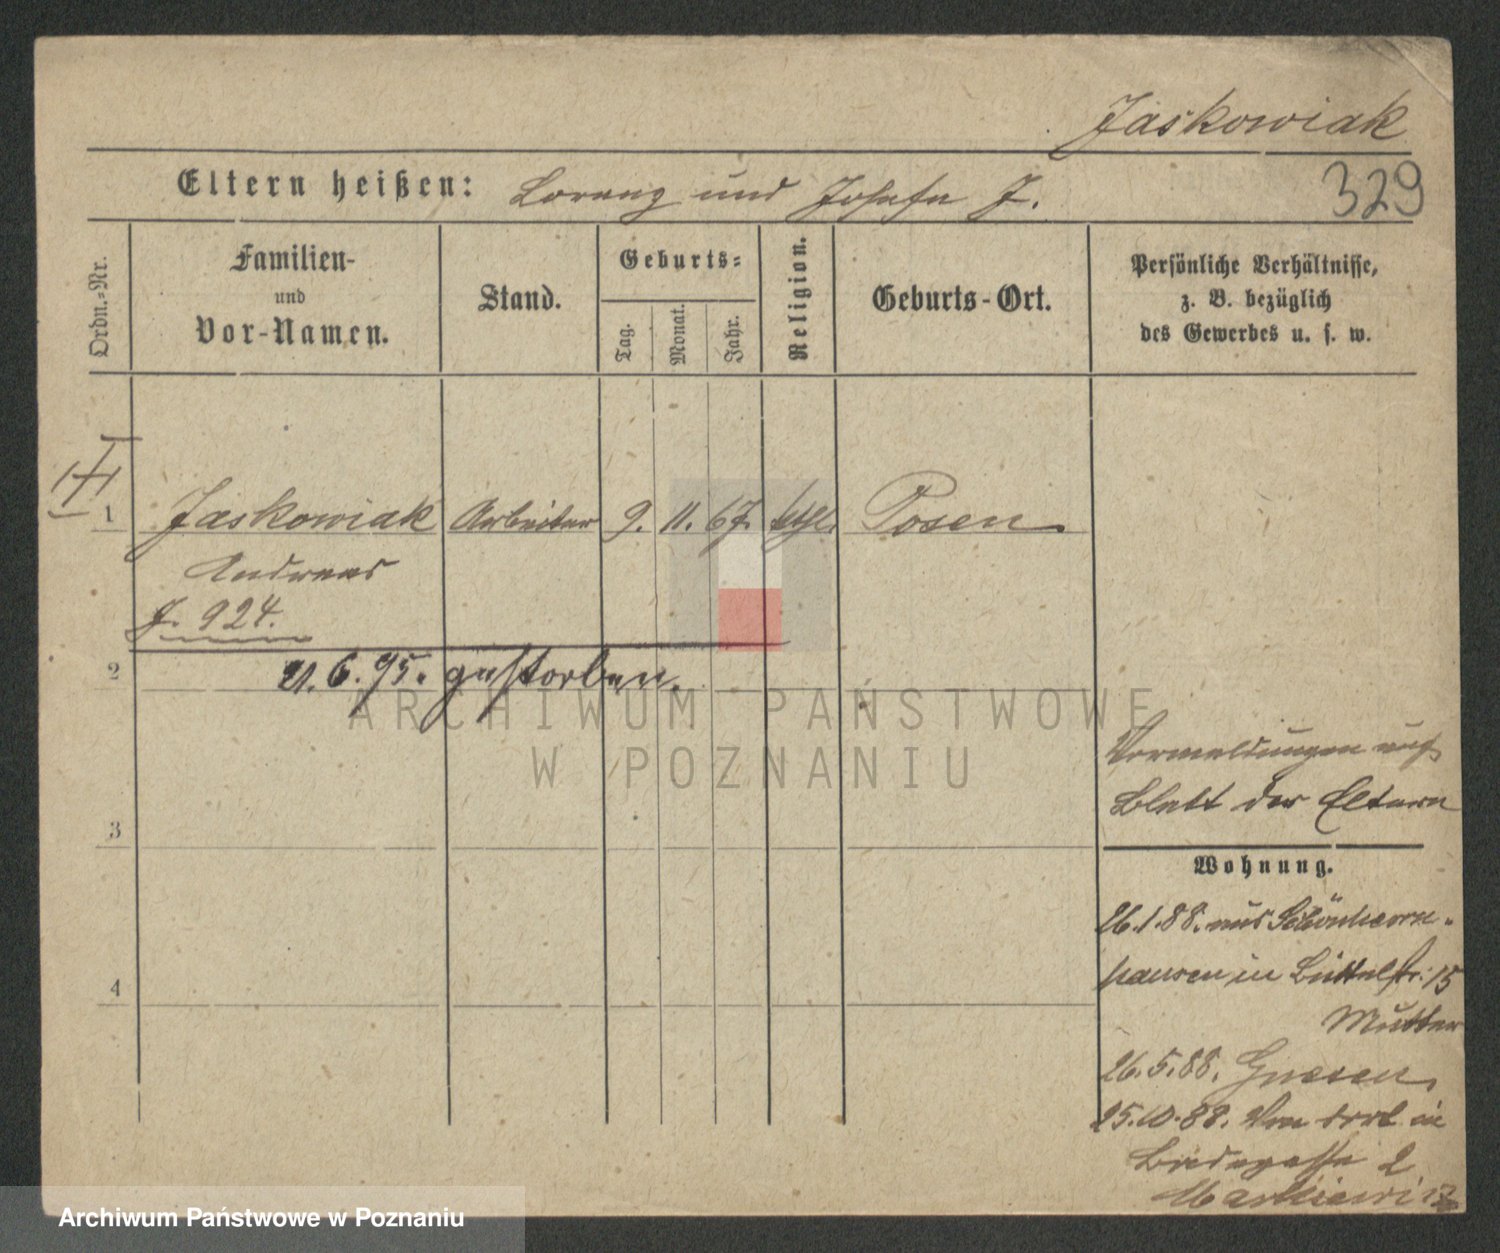 Jaskowiak
329
Eltern heißen: Lorenz und Josefa J.
Ordn.-Nr.
Familien-
und
Vor-Namen.
Stand.
Geburts-
Tag.
Monat.
Jahr.
Religion.
Geburts-Ort.
Persönliche Verhältnisse,
z. B. bezüglich
des Gewerbes u. s. w.
1 Jaskowiak Arbeiter 9. 11. 67. kath. Posen
Andreas
J. 924.
2
21. 6. 95. gestorben.
ARCHIWUM PAŃSTWOWE
W POZNANIU
Vormeldungen auf
Blatt der Eltern
3
Wohnung.
26.1.88. aus
hausen in Büttelstr. 15
4
Mutter
26.5.88. Gnesen,
25.10.88. Von dort in
2
Markiewicz
Archiwum Państwowe w Poznaniu